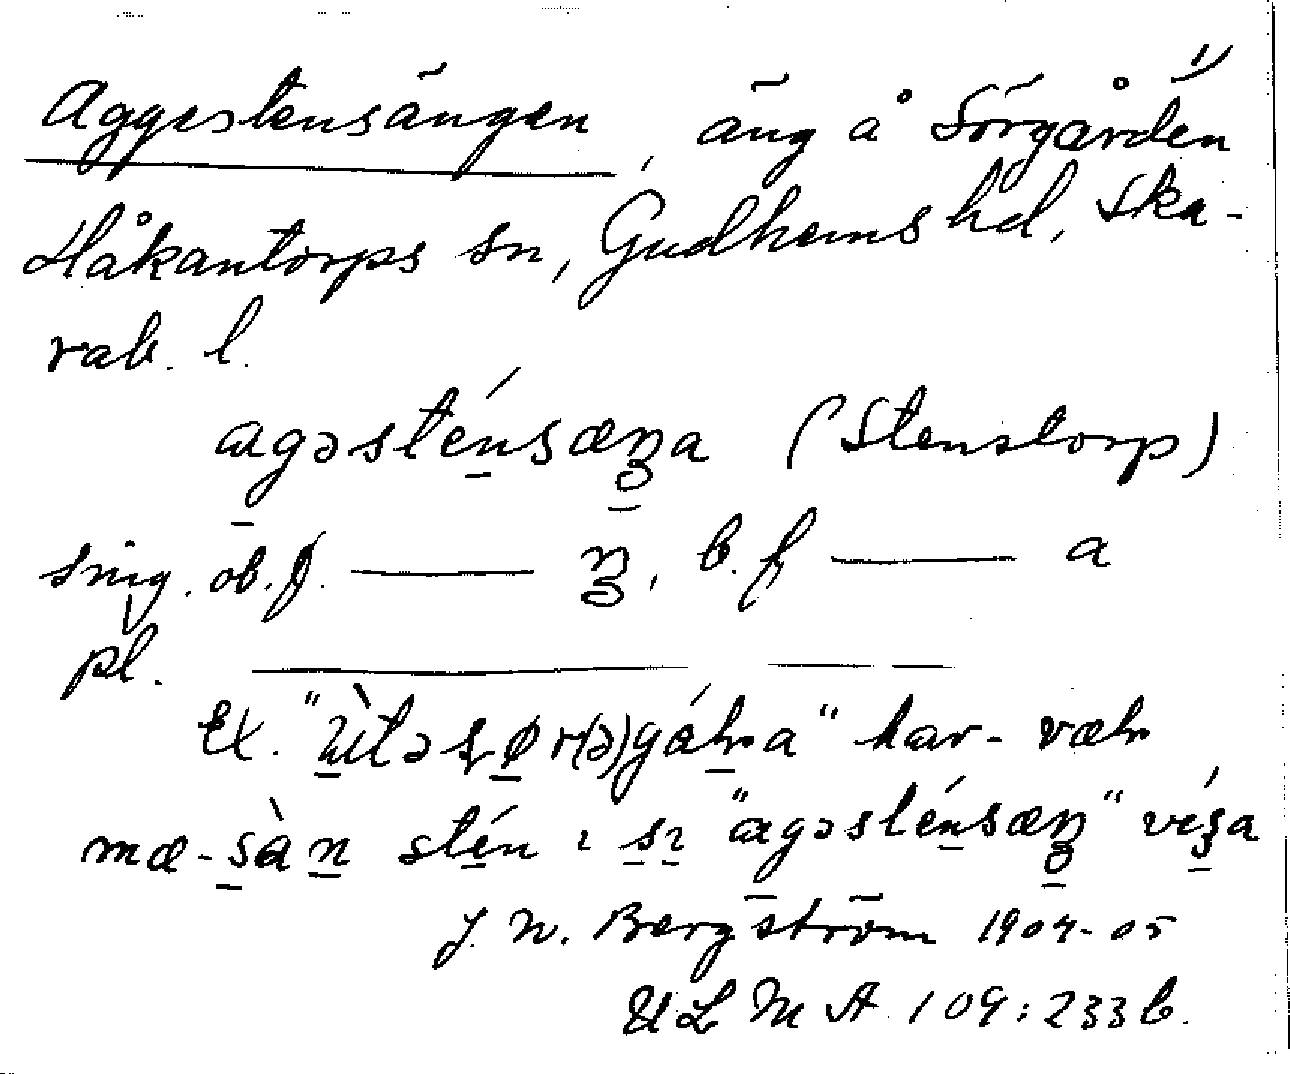 Aggestensängen, äng å Sörgården
Håkantorps sn, Gudhems hd, Ska-
rab. l.
agəsténsæŋa (Stenstorp)
sing. ob.f. — ŋ, b.f — a
pl. — — —
Ex. "ùtə sør(ə)gáɽa" har- væɽ
mæ-sàn stén ı sı "agəsténsæŋ" vésa
J. N. Bergström 1904-05
ULMA 109:233b.